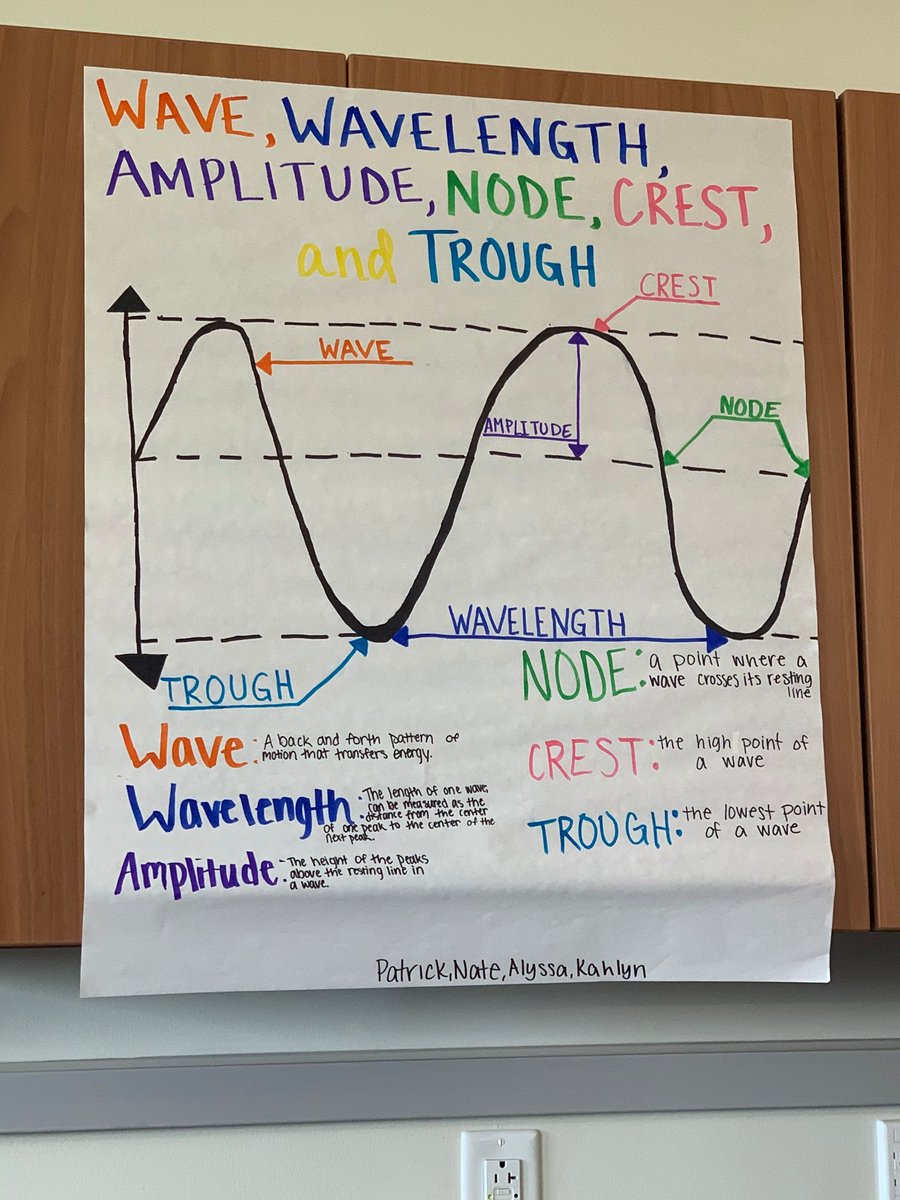 WAVE, WAVELENGTH,
AMPLITUDE, NODE, CREST,
and TROUGH
CREST
WAVE
NODE
AMPLITUDE
WAVELENGTH
TROUGH
Wave: A back and forth pattern of
motion that transfers energy.
Wavelength: The length of one wave,
can be measured as the
distance from the center
of one peak to the center of the
next peak.
Amplitude: The height of the peaks
above the resting line in
a wave.
NODE: a point where a
wave crosses its resting
line
CREST: the high point of
a wave
TROUGH: the lowest point
of a wave
Patrick, Nate, Alyssa, Kahlyn